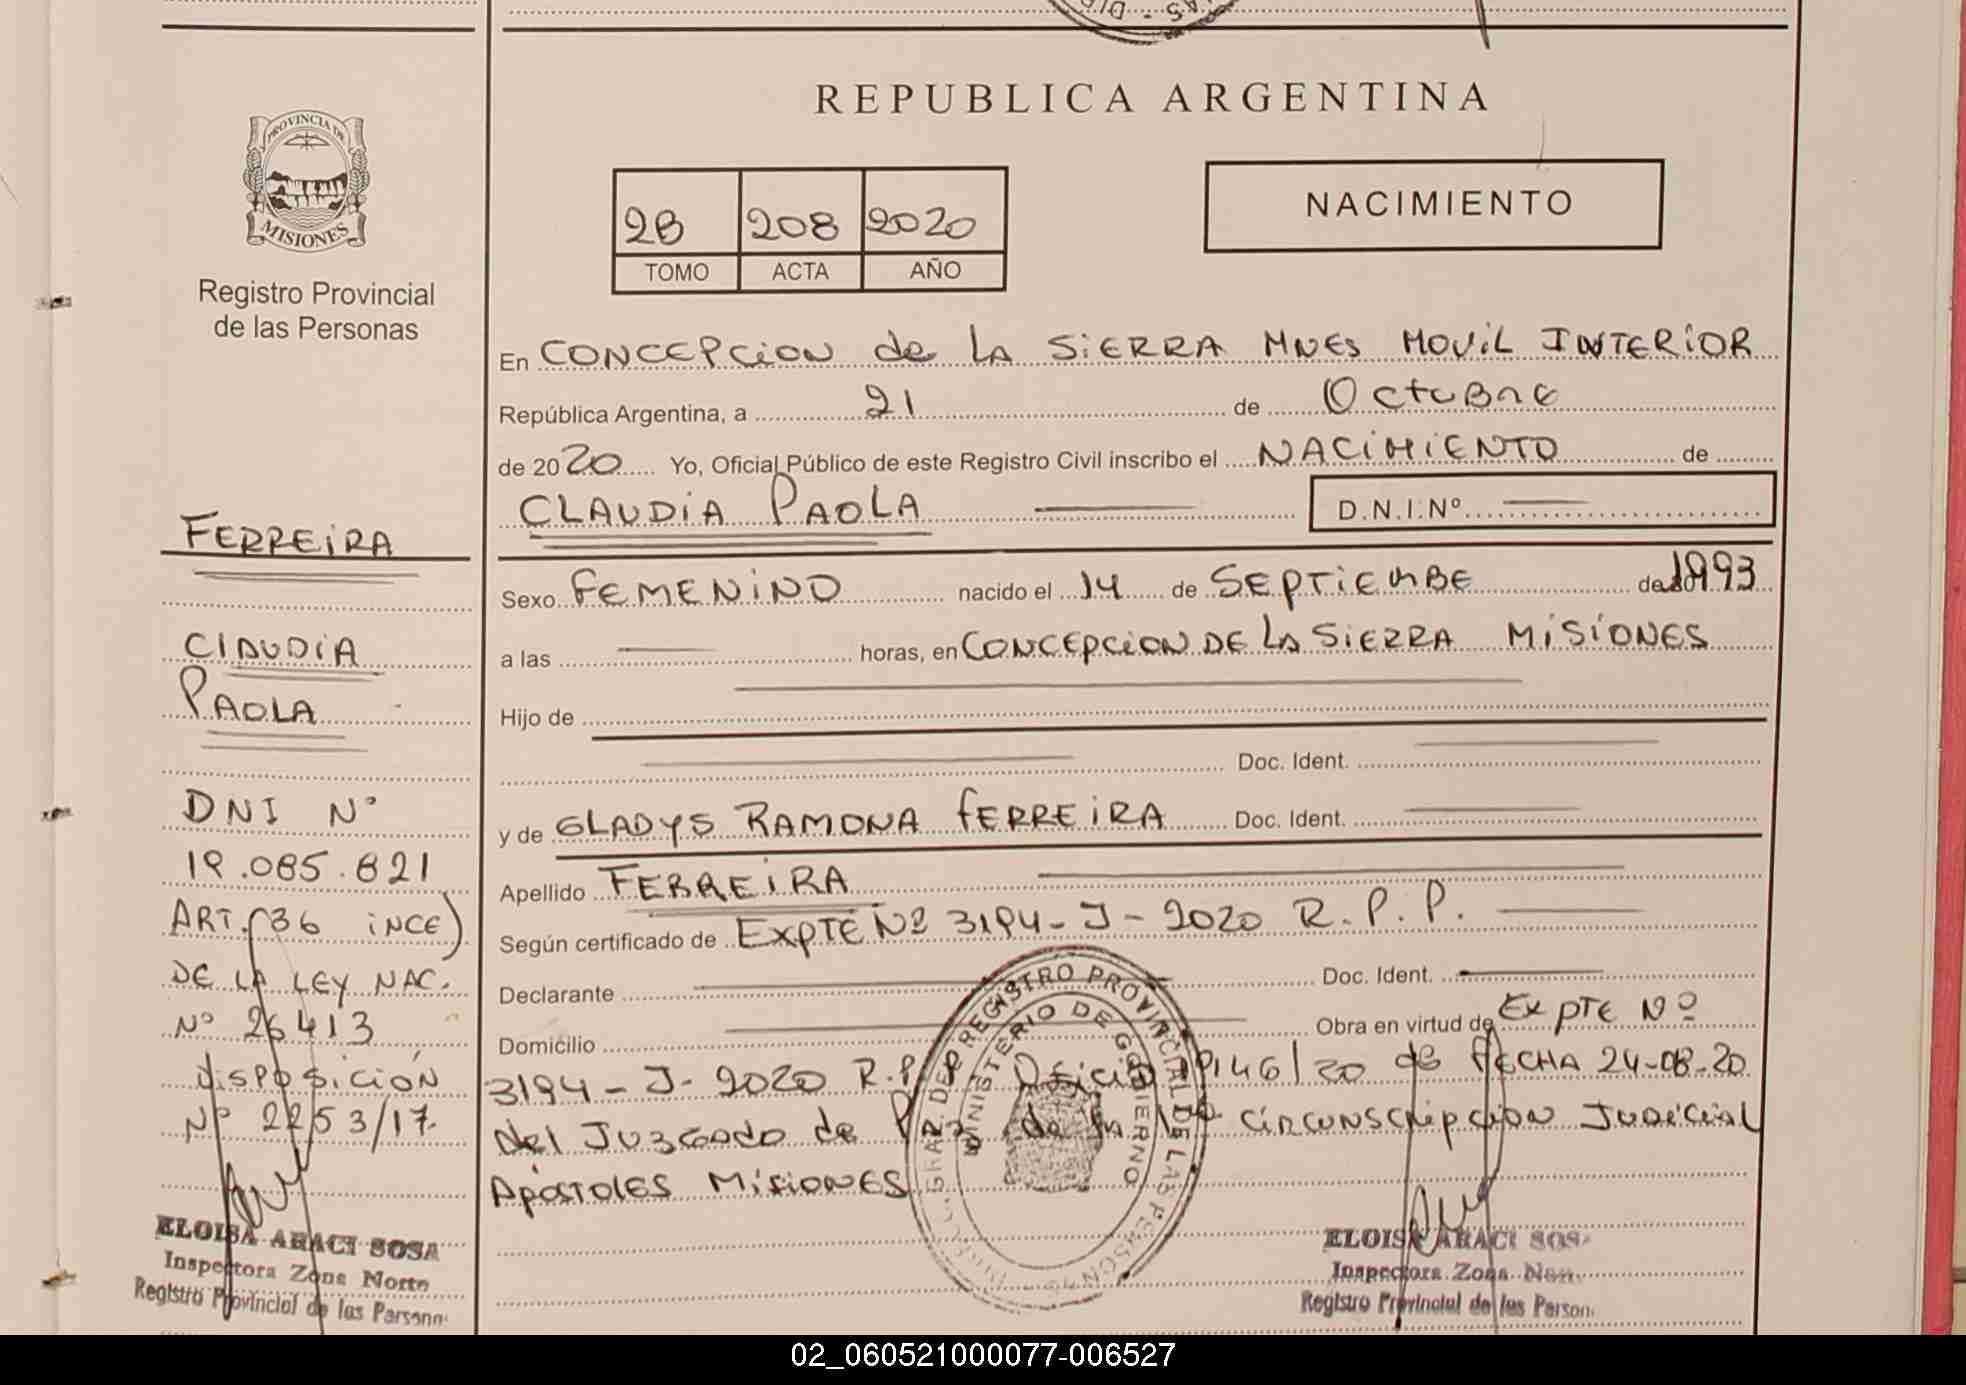 REPUBLICA ARGENTINA
PROVINCIA DE
MISIONES
Registro Provincial
de las Personas
2B 208 2020
TOMO ACTA AÑO
NACIMIENTO
En CONCEPCION de LA SiERRA MNES MOViL INTERiOR
República Argentina, a 21 de OctuBRE
de 2020 Yo, Oficial Público de este Registro Civil inscribo el NACiMiENTO de
CLAUDiA PAOLA D.N.I.Nº
Sexo FEMENiNO nacido el 14 de SEPTiEMBE de 1993
a las horas, en CONCEPCiON DE LA SiERRA MiSiONES
Hijo de
Doc. Ident.
y de GLADYS RAMONA FERREiRA Doc. Ident.
Apellido FERREiRA
Según certificado de EXPTE Nº 3194-J-2020 R.P.P.
Declarante Doc. Ident.
Domicilio Obra en virtud de EXPTE Nº
3194-J-2020 R.P. Oficio 146/20 de FECHA 24-08-20
del JUZGADO de PAZ de la 1º CiRCUNSCRiPCiON JUDiCiAL
APOSTOLES MiSiONES
FERREiRA
CLAUDiA
PAOLA
DNI Nº
19.085.821
ART. (36 iNCE)
DE LA LEY NAC.
Nº 26413
DiSPOSiCiÓN
Nº 2253/17.
ELOISA ARACI SOSA
Inspectora Zona Norte
Registro Provincial de las Persona
REGISTRO PROVINCIAL DE LAS PERSONAS
MINISTERIO DE GOBIERNO
ELOISA ARACI SOS
Inspectora Zona Nor
Registro Provincial de las Person
02_060521000077-006527